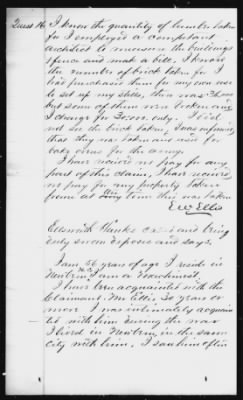 Ques 16. I know the quantity of lumber taken
for I employed a competant
architect to measure the buildings
& fence and make a bill, I know
the number of brick taken for I
had purchased them for my own use
to set up my stills, there was
but some of them were broken and
I charge for 20.000. only. I did
not see the brick taken, I was informed
that they was taken and used for
bake ovens for the army.
I have recieved no pay for any
part of this claim, I have recieved
no pay for my property taken
from at any time this was taken
E W Ellis
Ellsmith Hanks called and being
duly sworn deposes and says.
I am 56 years of age I reside in
Newbern N.C. I am a Machinist.
I have been acquainted with the
Claimant Mr Ellis 20 years or
more I was intimately acquain
ted with him during the war
I lived in Newbern in the same
city with him, I saw him often